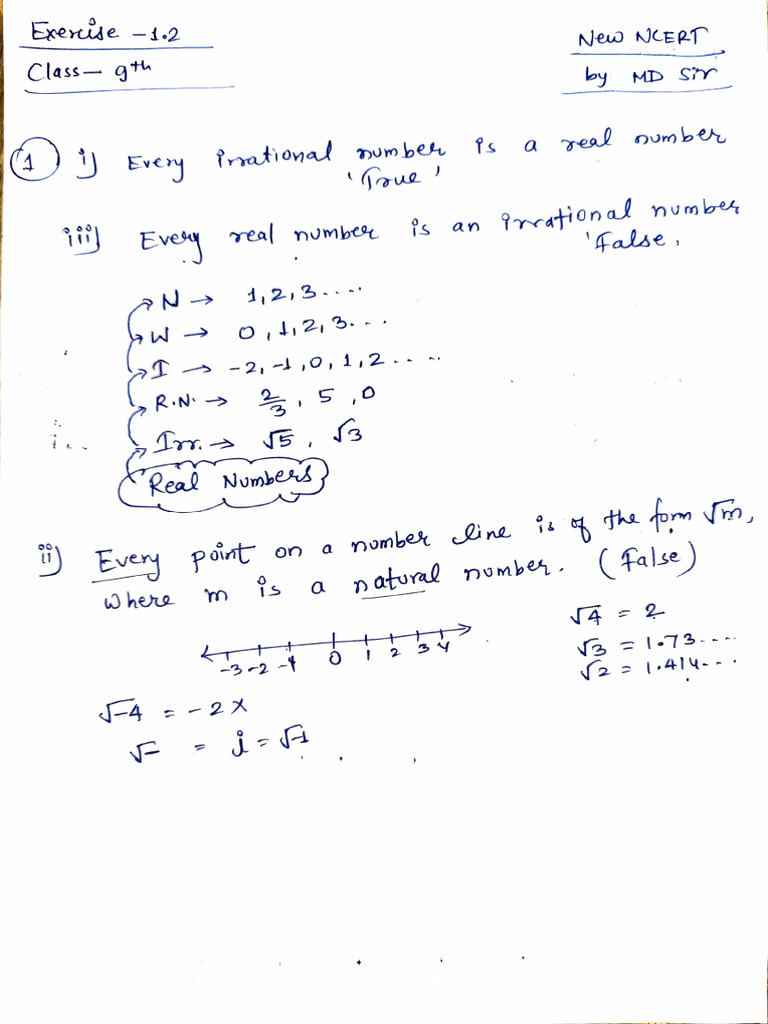 Exercise - 1.2
Class - 9th
New NCERT
by MD Sir
1 i) Every irrational number is a real number
'True'
iii) Every real number is an irrational number
'False,
N → 1, 2, 3.....
W → 0, 1, 2, 3...
I → -2, -1, 0, 1, 2.....
R.N. → 2/3, 5, 0
Irr. → √5, √3
Real Numbers
ii) Every point on a number line is of the form √m,
where m is a natural number. (False)
-3 -2 -1 0 1 2 3 4
√4 = 2
√3 = 1.73....
√2 = 1.414...
√-4 = -2 x
√- = i = √-1